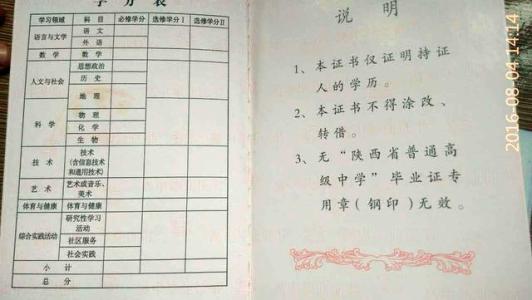 学分表
学习领域 科目 必修学分 选修学分Ⅰ 选修学分Ⅱ
语言与文学 语文
外语
数学 数学
人文与社会 思想政治
历史
地理
科学 物理
化学
生物
技术 技术
(含信息技术
和通用技术)
艺术 艺术或音乐、
美术
体育与健康 体育与健康
综合实践活动 研究性学习
活动
社区服务
社会实践
小计
总分
说明
1、本证书仅证明持证
人的学历。
2、本证书不得涂改、
转借。
3、无“陕西省普通高
级中学”毕业证专
用章(钢印)无效。
2016-08-04 14:14